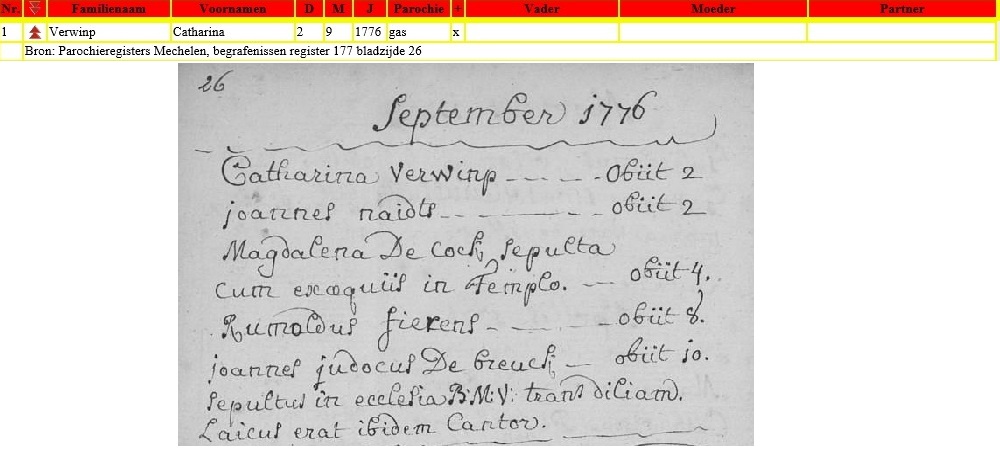 Nr. Familienaam Voornamen D M J Parochie + Vader Moeder Partner
1 Verwinp Catharina 2 9 1776 gas x
Bron: Parochieregisters Mechelen, begrafenissen register 177 bladzijde 26
26
September 1776
Catharina Verwinp - - - - - obiit 2
joannes naidts - - - - - - obiit 2
Magdalena De Cock, sepulta
cum exequiis in Templo. — obiit 4.
Rumoldus fierens - - - - - obiit 8.
joannes judocus De breuck, — obiit 10.
sepultus in ecclesia B:M:V: trans diliam.
Laicus erat ibidem Cantor.